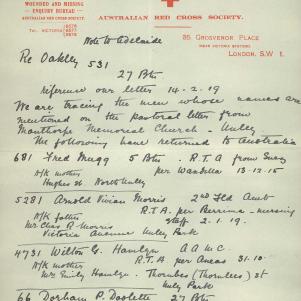 WOUNDED AND MISSING
ENQUIRY BUREAU
AUSTRALIAN RED CROSS SOCIETY.
AUSTRALIAN RED CROSS SOCIETY.
TEL. VICTORIA
35, GROSVENOR PLACE
NEAR VICTORIA STATION
LONDON, S.W. 1.
Note to Adelaide
Re Oakley 531
27 Btn
reference our letter 14-2-19
We are tracing the men whose names are
mentioned on the pastoral letter from
Manthorpe Memorial Church - Unley
The following have returned to Australia
681 Fred Mugg 5 Btn. R.T.A from Suez
N/K mother per Wandilla 13-12-15
Hughes St. North Unley
5281 Arnold Vivian Morris 2nd Fld Amb
R.T.A. per Berrima - nursing
N/K father staff 2-1-19.
Mr Chas R Morris
Victoria Avenue Unley Park
4731 Wilton G. Hamlyn A A M C.
N/K mother R.T.A per Aeneas 31.10
Mrs Emily Hamlyn Thornber (Thornlees) St
Unley Park
66 Dorham P. Doolette 27 Btn